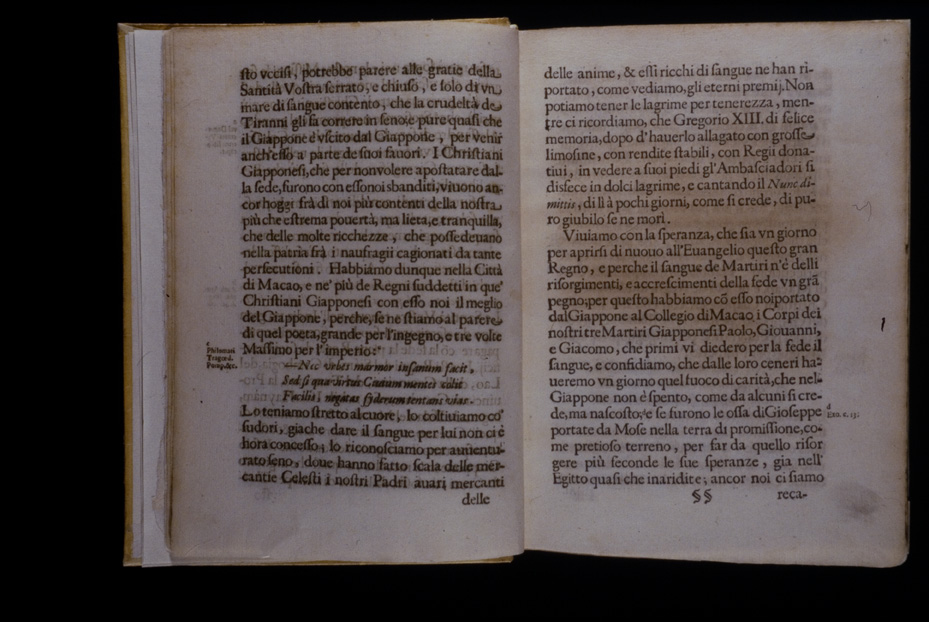 sto vccisi, potrebbe parere alle gratie della
Santità Vostra serrato, e chiuso, e solo di vn
mare di sangue contento, che la crudeltà de
Tiranni gli fa correre in seno, e pure quasi che
il Giappone è vscito dal Giappone, per venir
anch'esso a parte de suoi fauori. I Christiani
Giapponesi, che per non volere apostatare dal-
la fede, furono con essonoi sbanditi, viuono an-
cor hoggi frà di noi più contenti della nostra
più che estrema pouertà, ma lieta, e tranquilla,
che delle molte ricchezze, che possedeuano
nella patria frà i naufragii cagionati da tante
persecutioni. Habbiamo dunque nella Città
di Macao, e ne' più de Regni suddetti in que'
Christiani Giapponesi con esso noi il meglio
del Giappone, perche, se ne stiamo al parere
di quel poeta, grande per l'ingegno, e tre volte
Massimo per l'imperio:
c
—Nec vrbes marmor insanum facit,
Sed si qua
Facilis, negatas syderum tentans vias.
Lo teniamo stretto al cuore, lo coltiuiamo co'
sudori, giache dare il sangue per lui non ci è
hora concesso; lo riconosciamo per auuentu-
rato seno, doue hanno fatto scala delle mer-
cantie Celesti i nostri Padri auari mercanti
delle
delle anime, & essi ricchi di sangue ne han ri-
portato, come vediamo, gli eterni premij. Non
potiamo tener le lagrime per tenerezza, men-
tre ci ricordiamo, che Gregorio XIII. di felice
memoria, dopo d'hauerlo allagato con grosse
limosine, con rendite stabili, con Regii dona-
tiui, in vedere a suoi piedi gl'Ambasciadori si
disfece in dolci lagrime, e cantando il Nunc di-
mittis, di lì à pochi giorni, come si crede, di pu-
ro giubilo se ne morì.
Viuiamo con la speranza, che sia vn giorno
per aprirsi di nuouo all'Euangelio questo gran
Regno, e perche il sangue de Martiri n'è delli
risorgimenti, e accrescimenti della fede vn grã
pegno; per questo habbiamo cõ esso noi portato
dal Giappone al Collegio di Macao i Corpi dei
nostri tre Martiri Giapponesi Paolo, Giouanni,
e Giacomo, che primi vi diedero per la fede il
sangue, e confidiamo, che dalle loro ceneri ha-
ueremo vn giorno quel fuoco di carità, che nel
Giappone non è spento, come da alcuni si cre-
de, ma nascosto; e se furono le ossa di Gioseppe
d
Exo. c. 13:
portate da Mosè nella terra di promissione, co-
me pretioso terreno, per far da quello risor
gere più feconde le sue speranze, già nell'
Egitto quasi che inaridite; ancor noi ci siamo
§§ reca-